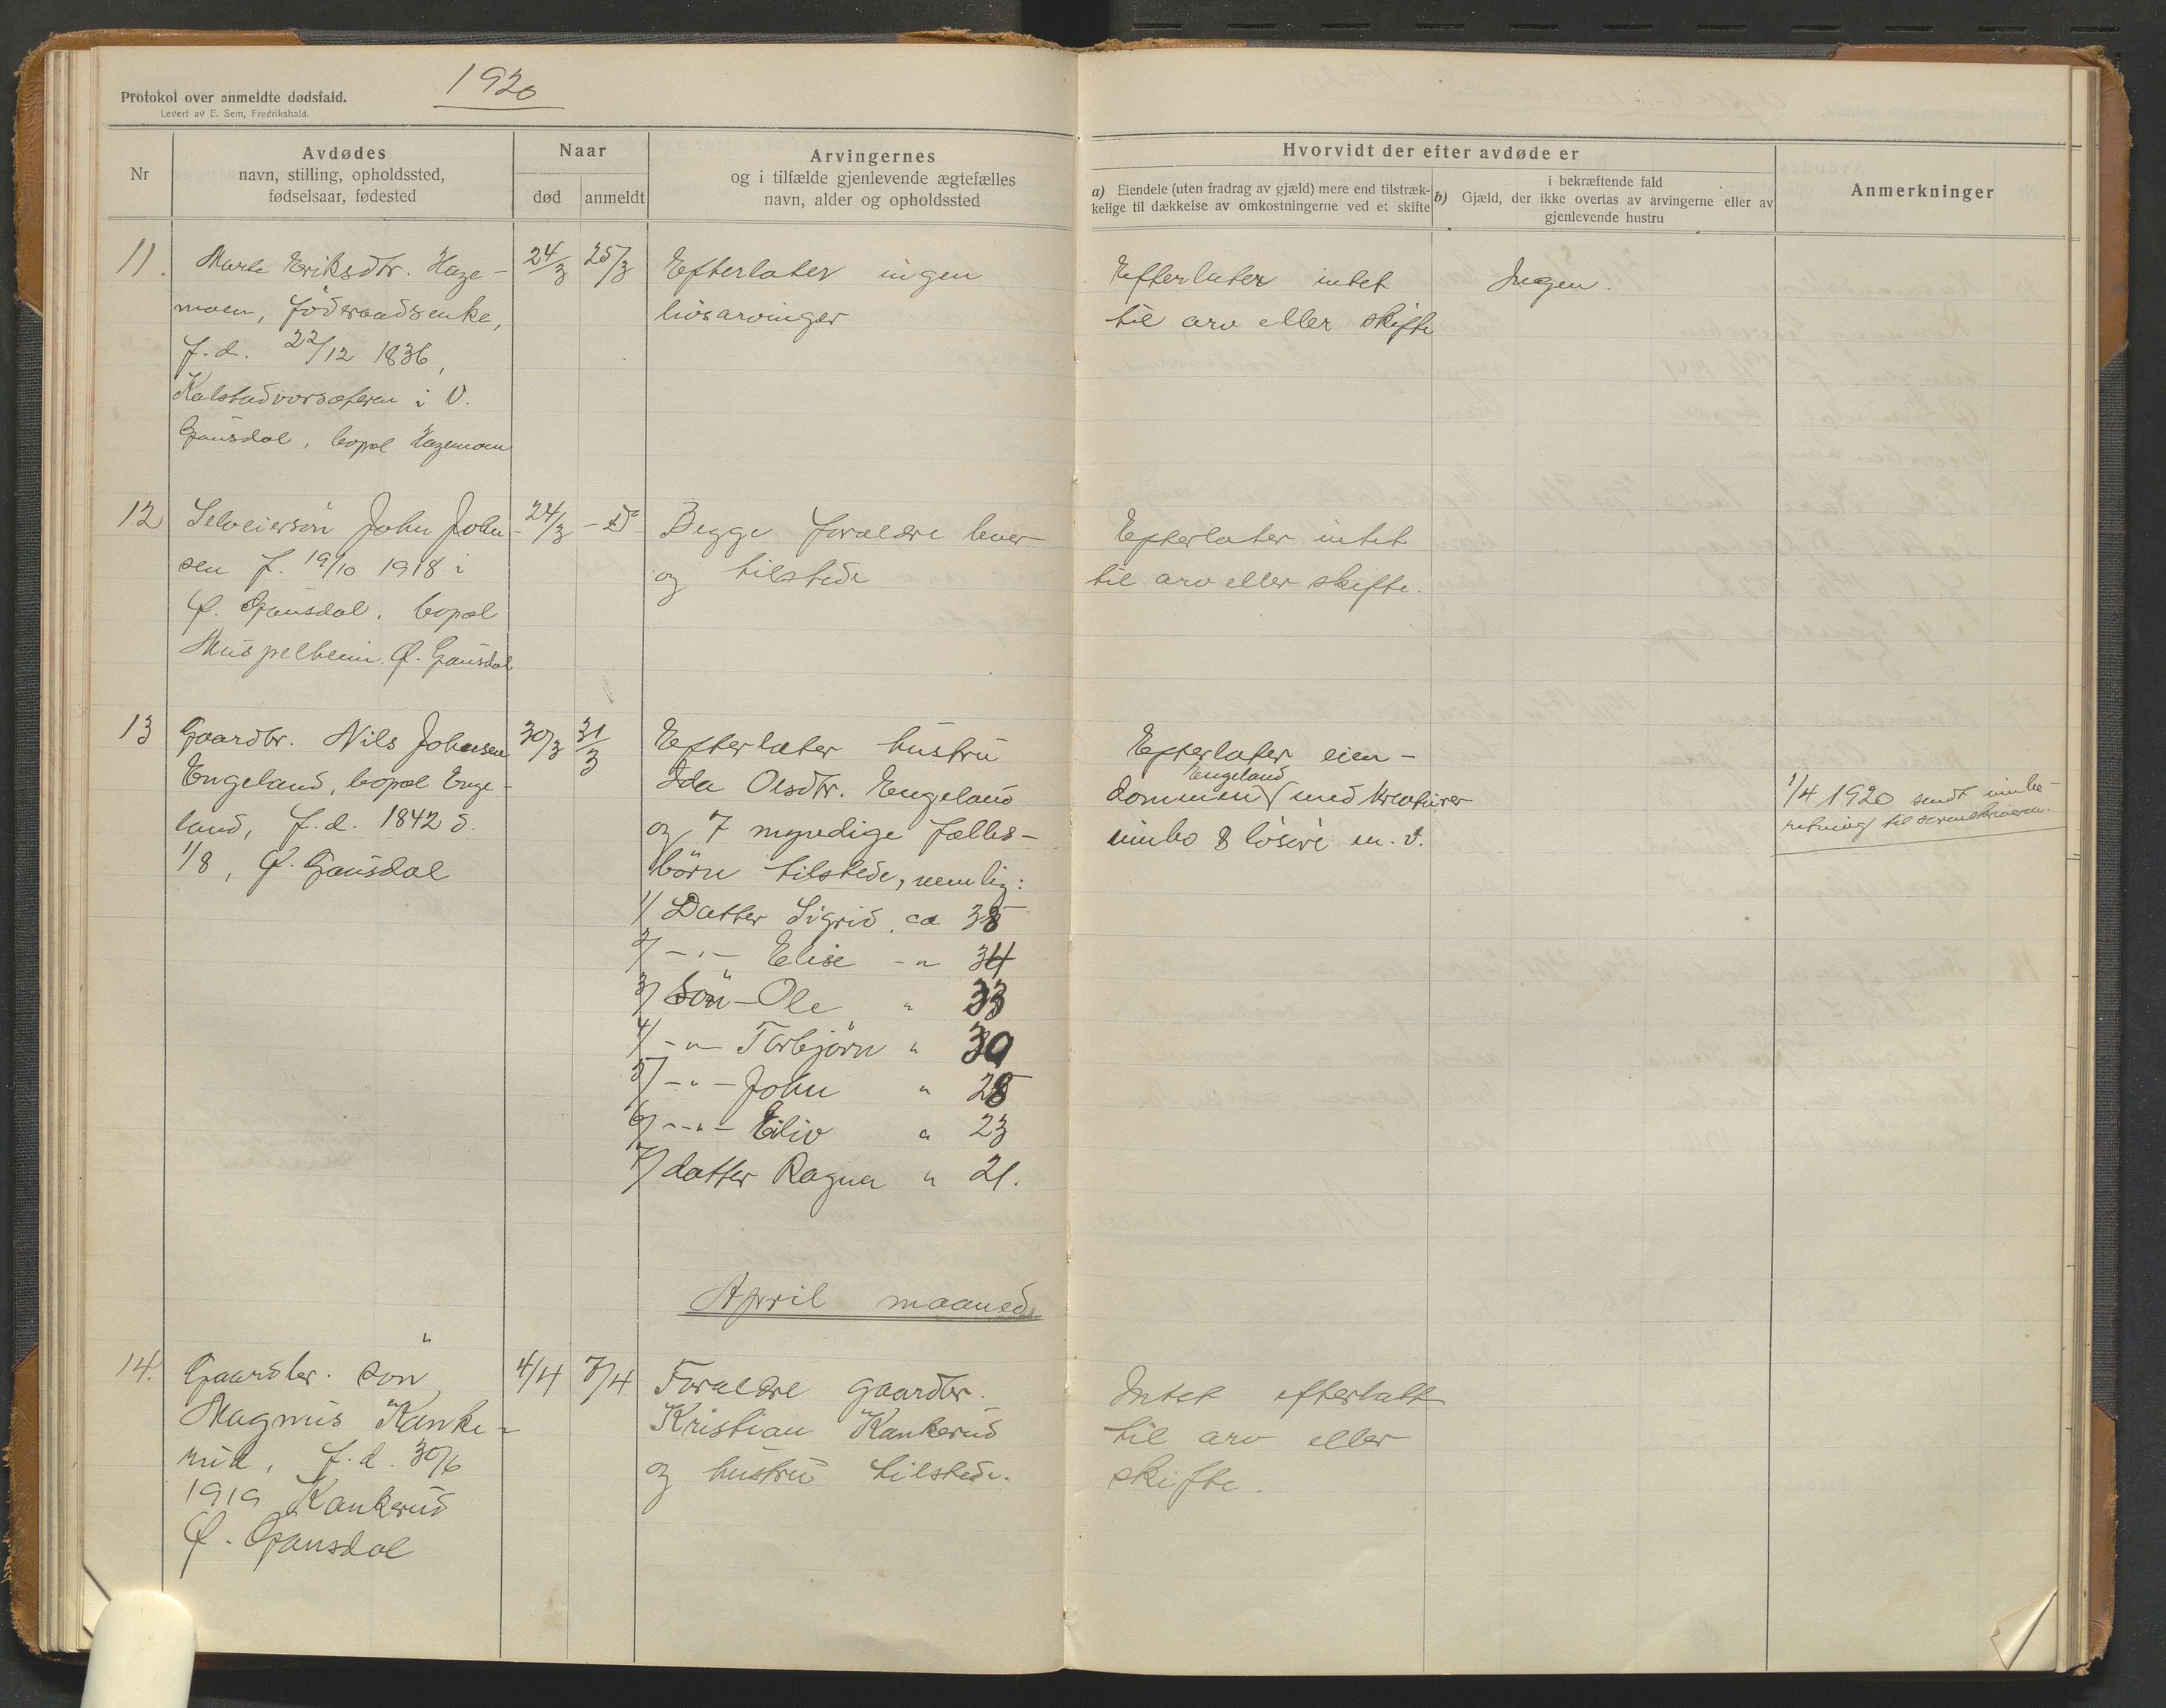 1920
Protokol over anmeldte dødsfald.
Levert av E. Sem, Fredrikshald.
Nr
Avdødes
navn, stilling, opholdssted,
fødselsaar, fødested
Naar
død
anmeldt
Arvingernes
og i tilfælde gjenlevende ægtefælles
navn, alder og opholdssted
Hvorvidt der efter avdøde er
a) Eiendele (uten fradrag av gjæld) mere end tilstræk-
kelige til dækkelse av omkostningerne ved et skifte
i bekræftende fald
b) Gjæld, der ikke overtas av arvingerne eller av
gjenlevende hustru
Anmerkninger
11.
Marte Eriksdtr. Hage-
moen, föderaadsenke,
f.d. 22/12 1836,
Kalstadvorsæteren i V.
Gausdal, bopæl Hagemoen
24/3
25/3
Efterlater ingen
livsarvinger
Efterlater intet
til arv eller skifte
Ingen.
12
Selveiersön John John-
sen f. 19/10 1918 i
Ø. Gausdal. bopæl
Muspelheim. Ø. Gausdal
24/3
- Do
Begge forældre lever
og tilstede
Efterlater intet
til arv eller skifte.
13
Gaardbr. Nils Johnsen
Engeland, bopæl Enge-
land, f.d. 1842 d.
1/8, Ø. Gausdal
30/3
31/3
Efterlater hustru
Ida Olsdtr. Engeland
og 7 myndige fælles-
börn tilstede, nemlig:
1/ Datter Sigrid ca 38
2/ -"- Elise -" 34
3/ Sön - Ole " 33
4/ -"- Torbjörn " 30
5/ -"- John " 28
6/ -"- Eiliv " 23
7/ datter Ragna " 21.
Efterlater eien-
Engeland
dommen med kreaturer
innbo & lösöre m. v.
1/4 1920 sendt innbe-
retning til sorenskriveren.
April maaned
14.
Gaardbr. sön
Magnus Kanke-
rud, f.d. 30/6
1919 Kankerud
Ø. Gausdal
4/4
7/4
Forældre gaardbr.
Kristian Kankerud
og hustru tilstede.
Intet efterlatt
til arv eller
skifte.